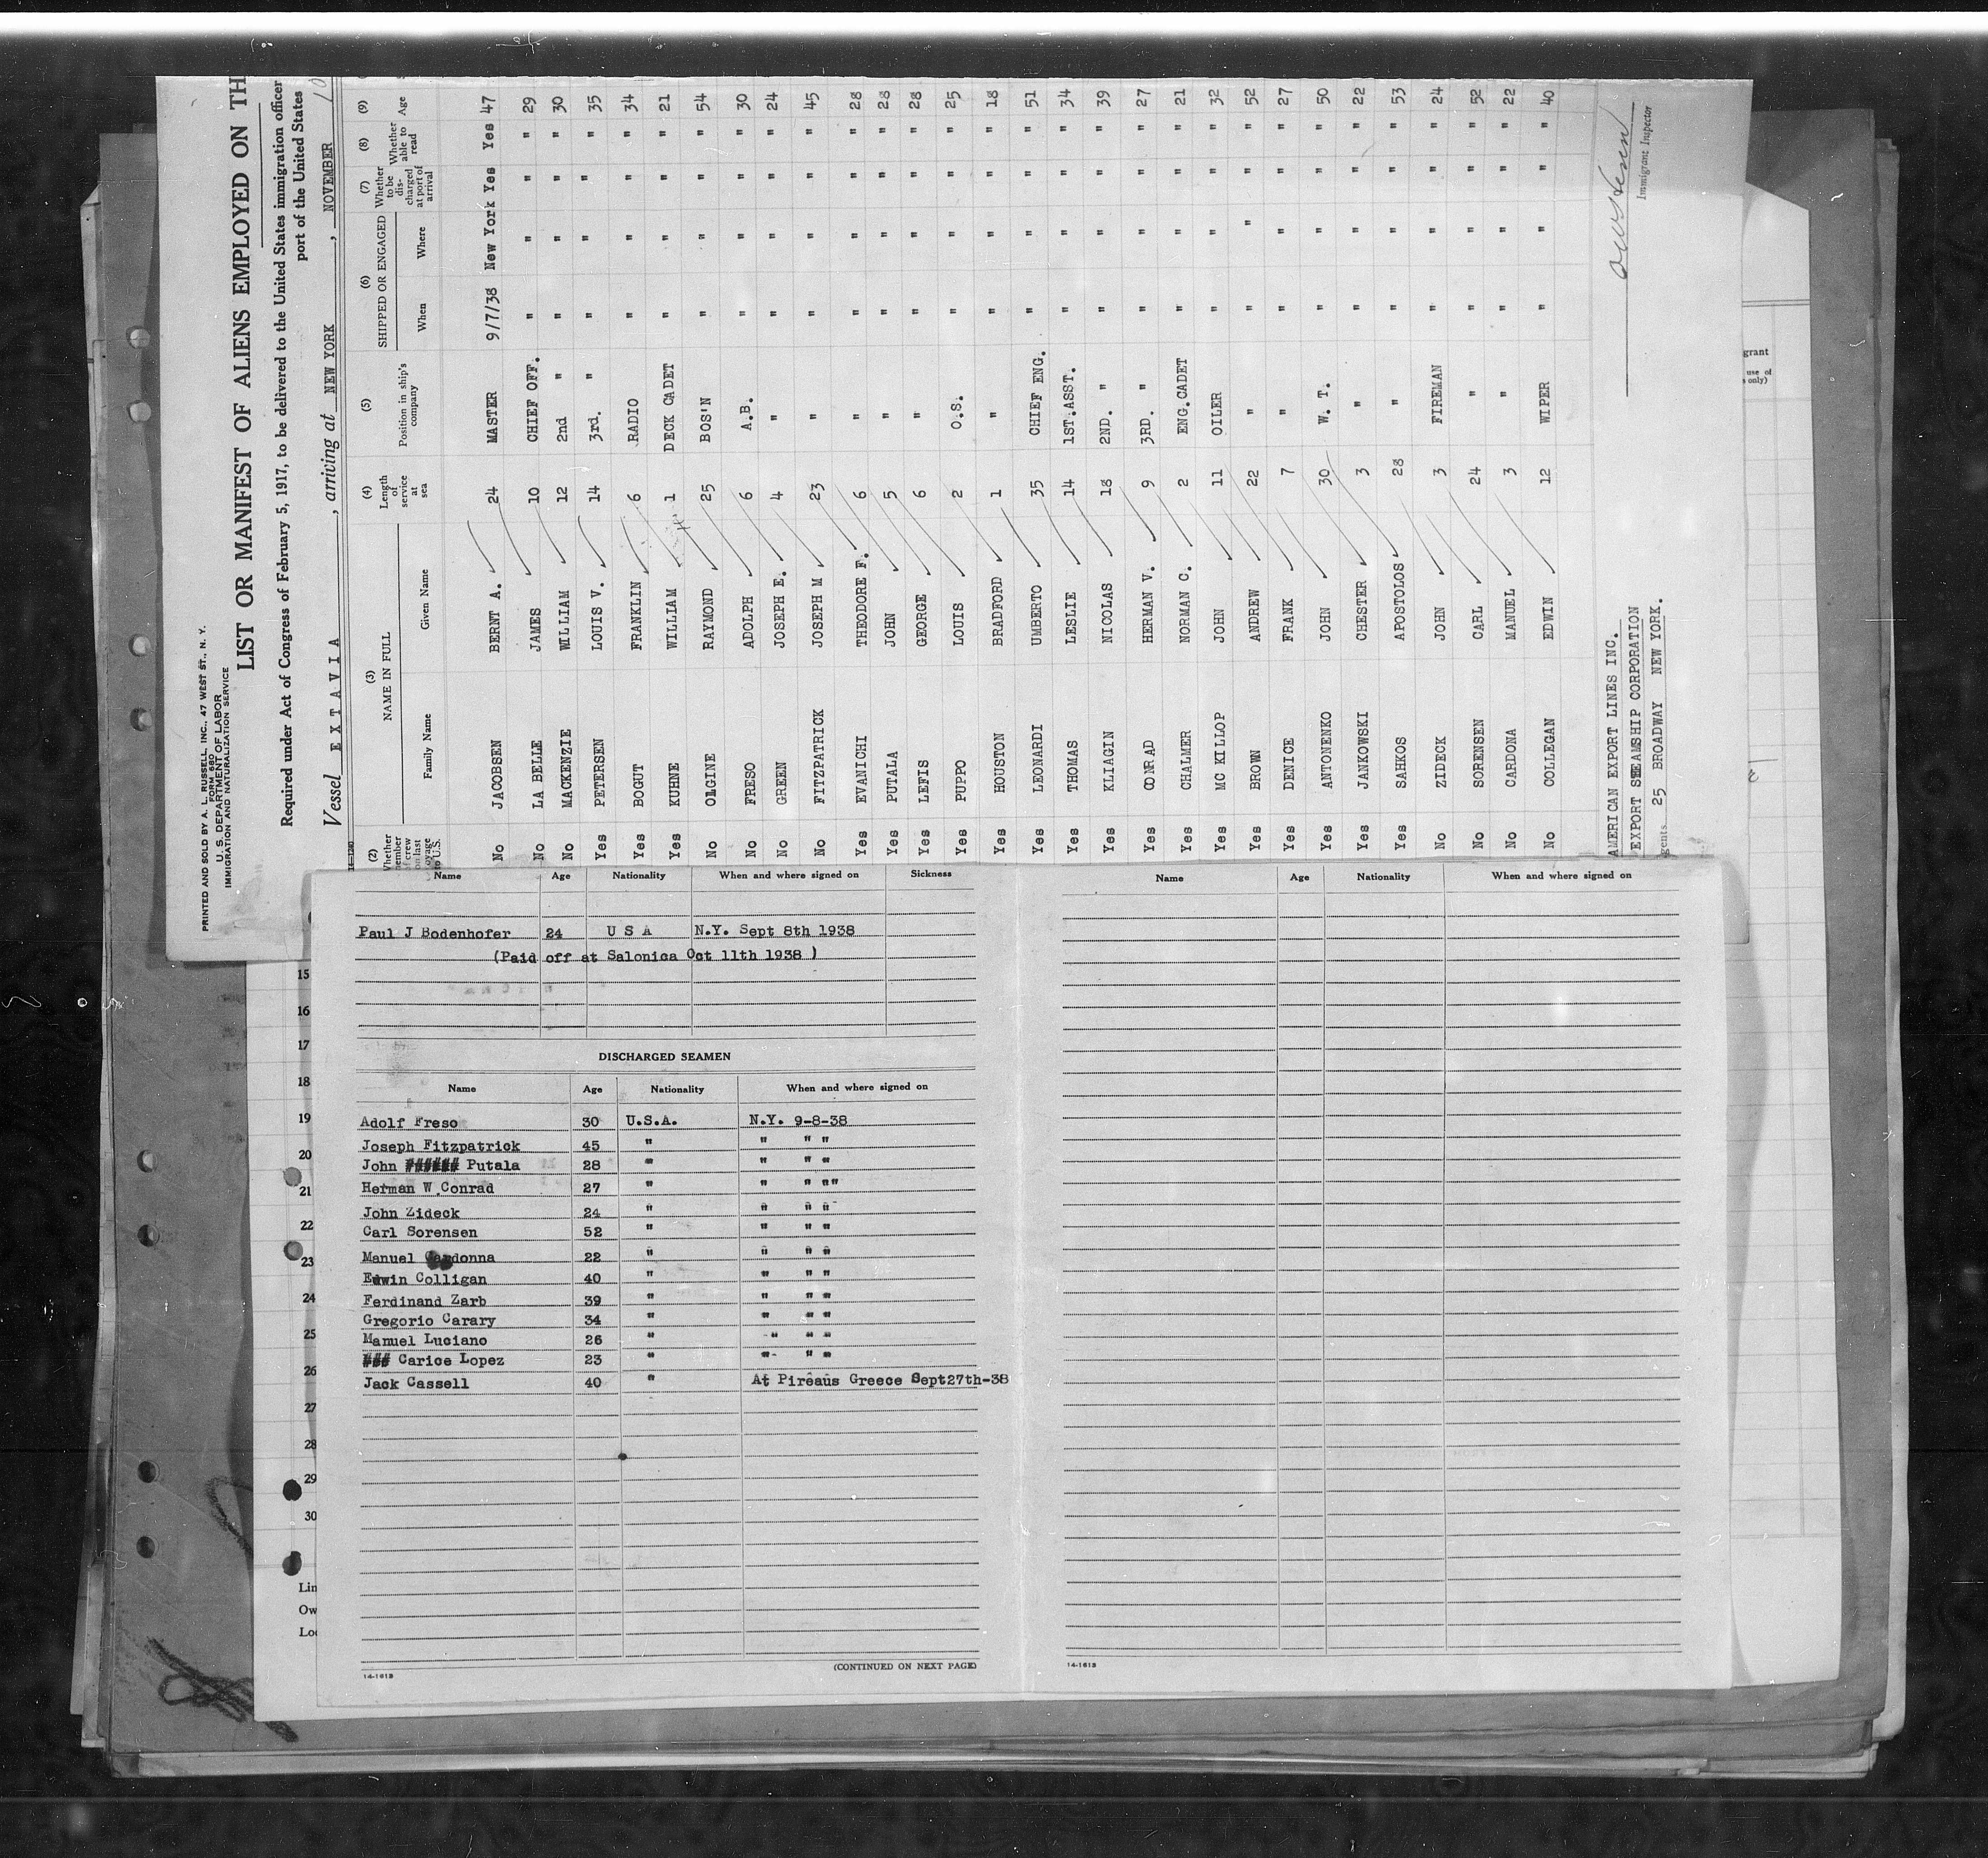 PRINTED AND SOLD BY A. L. RUSSELL, INC., 47 WEST ST., N. Y.
FORM 680
U. S. DEPARTMENT OF LABOR
IMMIGRATION AND NATURALIZATION SERVICE
LIST OR MANIFEST OF ALIENS EMPLOYED ON TH
Required under Act of Congress of February 5, 1917, to be delivered to the United States immigration officer
port of the United States
Vessel EXTAVIA, arriving at NEW YORK, NOVEMBER 10
(2) (3) (4) (5) (6) (7) (8) (9)
Whether member crew on last voyage to U.S. NAME IN FULL Length of service at sea Position in ship's company SHIPPED OR ENGAGED Whether to be discharged at port of arrival Whether able to read Age
Family Name Given Name When Where
No JACOBSEN BERNT A. 24 MASTER 9/7/38 New York Yes Yes 47
No LA BELLE JAMES 10 CHIEF OFF. " " " " 29
No MACKENZIE WILLIAM 12 2nd " " " " " 30
Yes PETERSEN LOUIS V. 14 3rd. " " " " " 35
Yes BOGUT FRANKLIN 6 RADIO " " " " 34
Yes KUHNE WILLIAM 1 DECK CADET " " " " 21
No OLGINE RAYMOND 25 BOS'N " " " " 54
No FRESO ADOLPH 6 A.B. " " " " 30
No GREEN JOSEPH E. 4 " " " " " 24
No FITZPATRICK JOSEPH M 23 " " " " " 45
Yes EVANICHI THEODORE F. 6 " " " " " 28
Yes PUTALA JOHN 5 " " " " " 28
Yes LEFIS GEORGE 6 " " " " " 28
Yes PUPPO LOUIS 2 O.S. " " " " 25
Yes HOUSTON BRADFORD 1 " " " " " 18
Yes LEONARDI UMBERTO 35 CHIEF ENG. " " " " 51
Yes THOMAS LESLIE 14 1ST.ASST. " " " " 34
Yes KLIAGIN NICOLAS 18 2ND. " " " " " 39
Yes CONRAD HERMAN V. 9 3RD. " " " " " 27
Yes CHALMER NORMAN C. 2 ENG.CADET " " " " 21
Yes MC KILLOP JOHN 11 OILER " " " " 32
Yes BROWN ANDREW 22 " " " " " 52
Yes DENICE FRANK 7 " " " " " 27
Yes ANTONENKO JOHN 30 W. T. " " " " 50
Yes JANKOWSKI CHESTER 3 " " " " " 22
Yes SAHKOS APOSTOLOS 28 " " " " " 53
No ZIDECK JOHN 3 FIREMAN " " " " 24
No SORENSEN CARL 24 " " " " " 52
No CARDONA MANUEL 3 " " " " " 22
No COLLEGAN EDWIN 12 WIPER " " " " 40
AMERICAN EXPORT LINES INC.
EXPORT STEAMSHIP CORPORATION
25 BROADWAY NEW YORK.
Immigrant Inspector
grant
use of
only)
Name Age Nationality When and where signed on Sickness
Paul J Bodenhofer 24 U S A N.Y. Sept 8th 1938
(Paid off at Salonica Oct 11th 1938 )
DISCHARGED SEAMEN
Name Age Nationality When and where signed on
Adolf Freso 30 U.S.A. N.Y. 9-8-38
Joseph Fitzpatrick 45 " " " "
John ###### Putala 28 " " " "
Herman W Conrad 27 " " " ""
John Zideck 24 " " " "
Carl Sorensen 52 " " " "
Manuel Cardonna 22 " " " "
Edwin Colligan 40 " " " "
Ferdinand Zarb 39 " " " "
Gregorio Carary 34 " " " "
Manuel Luciano 26 " " " "
### Carice Lopez 23 " " " "
Jack Cassell 40 " At Pireaus Greece Sept27th-38
(CONTINUED ON NEXT PAGE)
14-1613
Name Age Nationality When and where signed on
14-1613
15
16
17
18
19
20
21
22
23
24
25
26
27
28
29
30
Lin
Ow
Loc